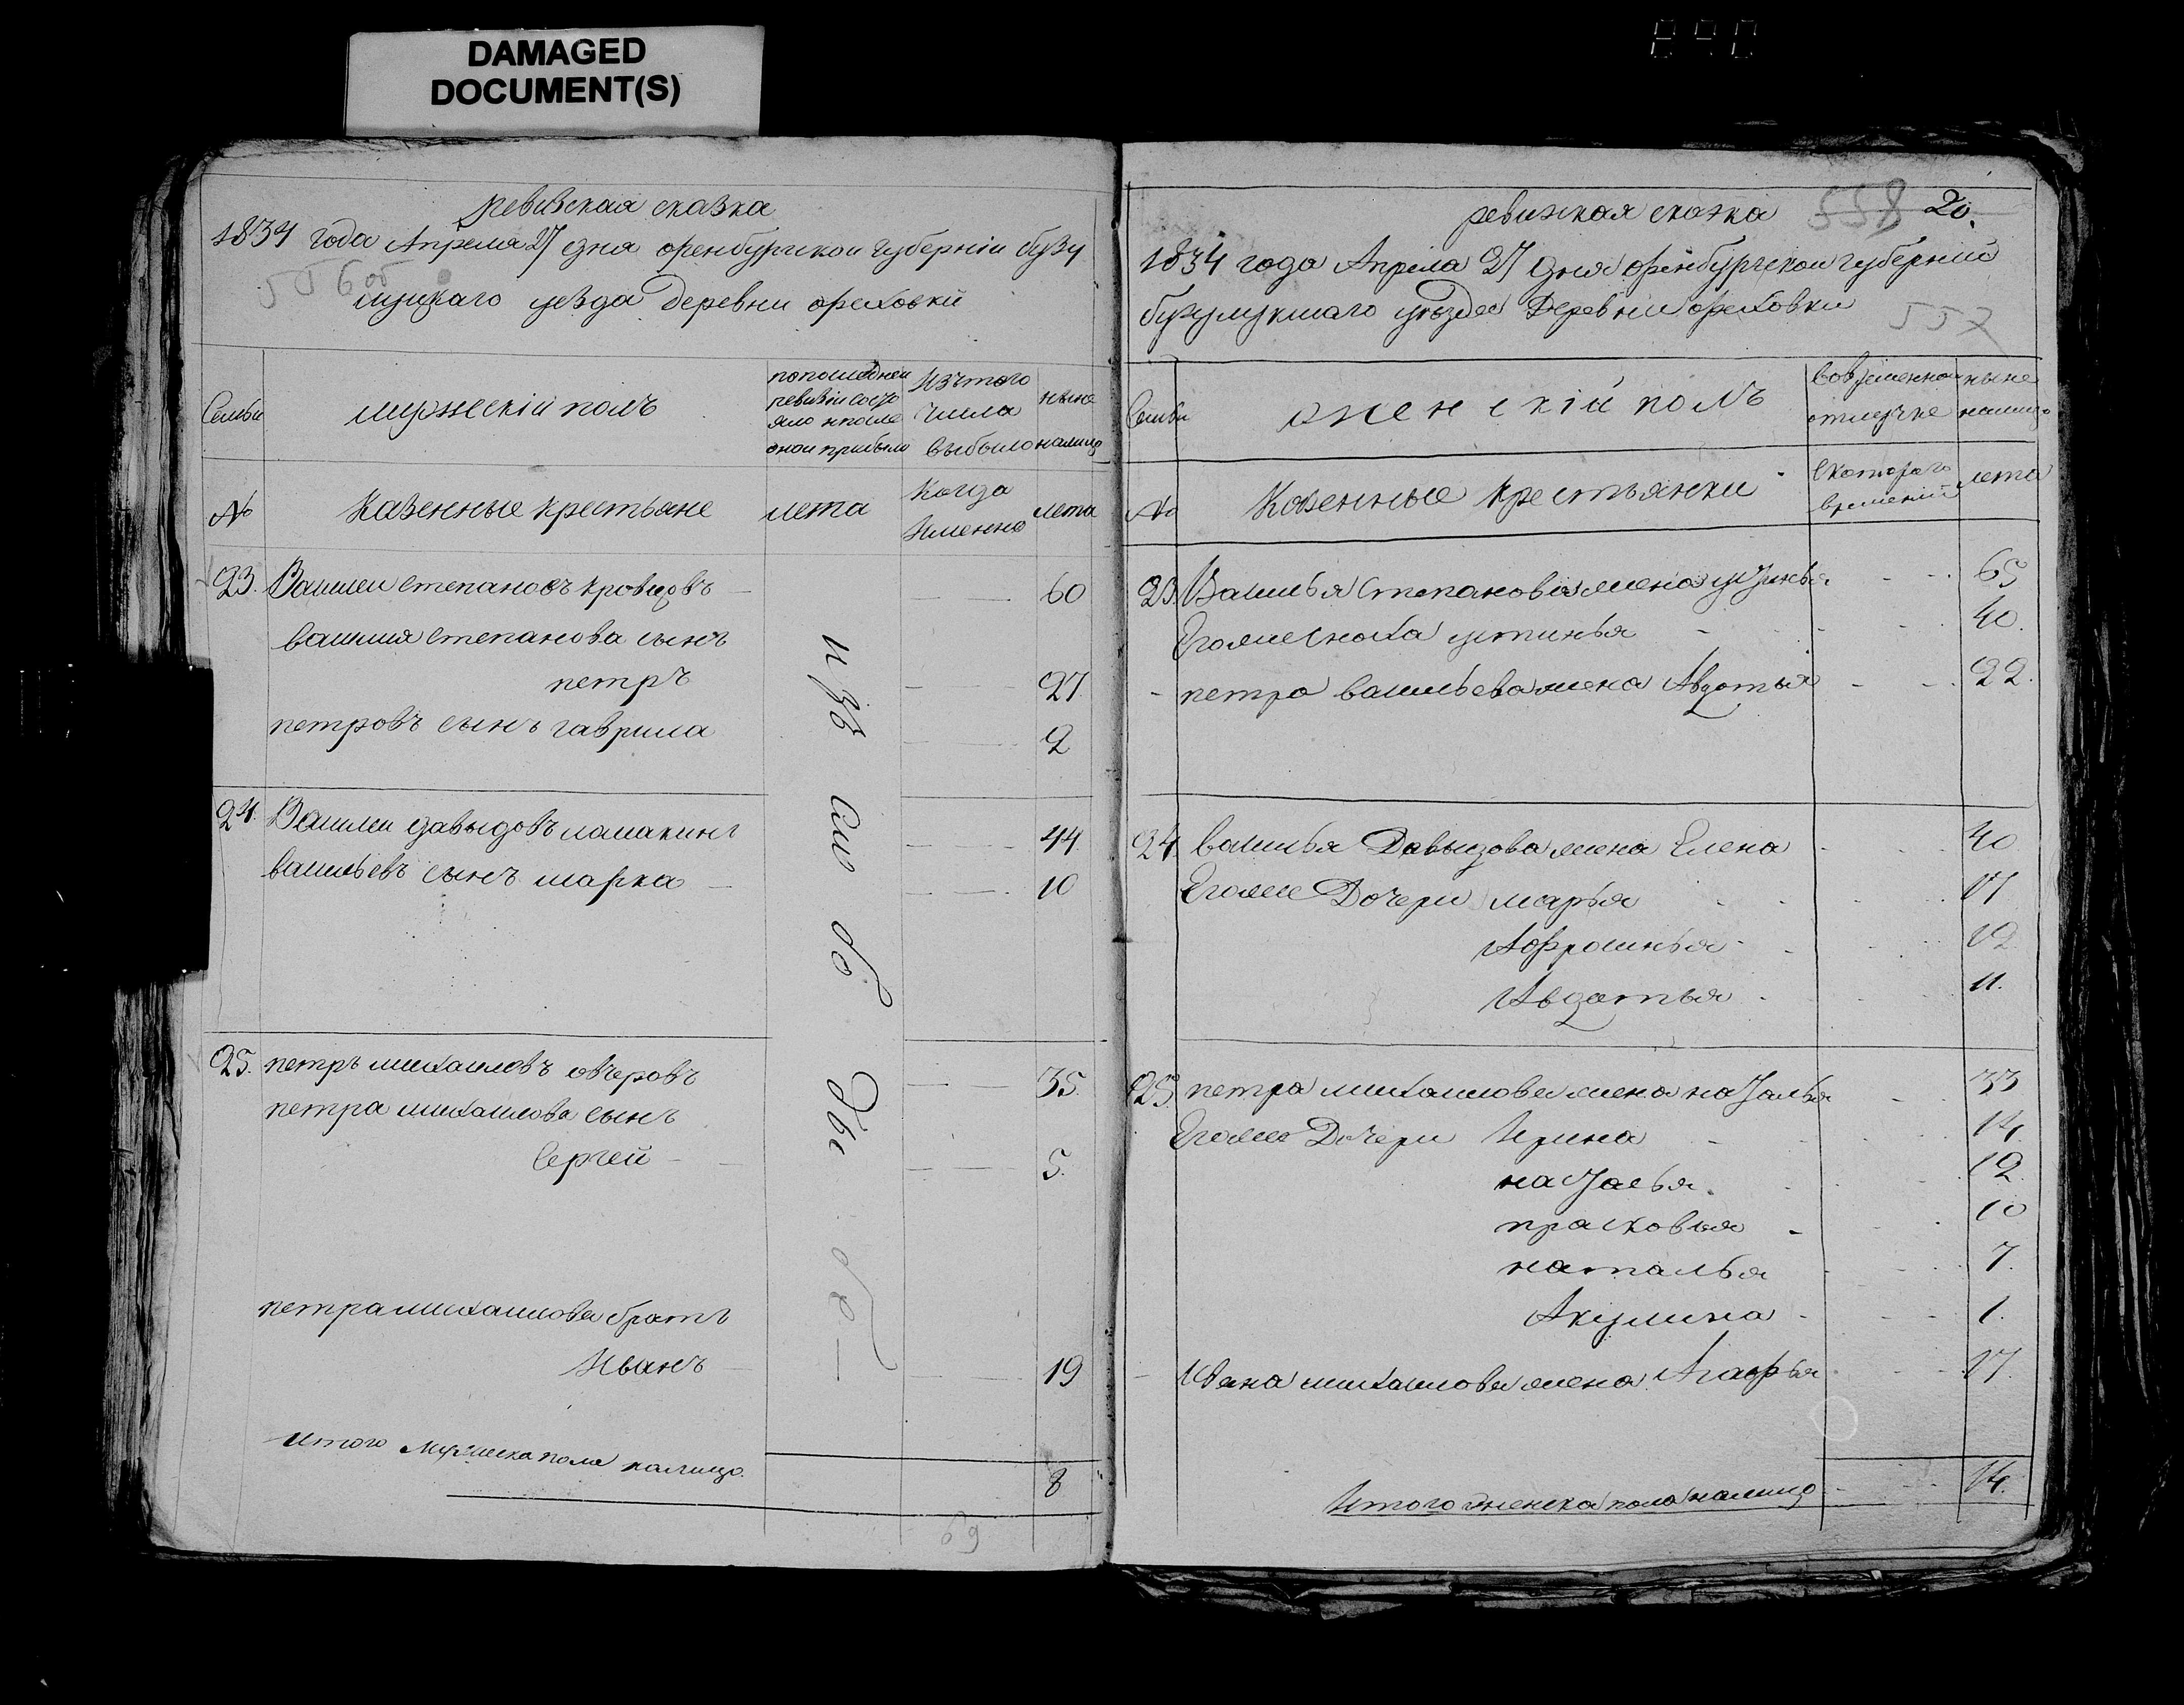 DAMAGED
DOCUMENT(S)
ревизская сказка
1834 года Апреля 27 дня оренбургской губернiи бузу
лукскаго уезда Деревни ореховки
556 об
Семьи
мужескiй полъ
по последней
ревизiи состо
яло и после
оной прибыло
Изъ того
числа
выбыло
ныне
налицо
№
Казенные крестьяне
лета
Когда
Именно
лета
23. Василеи Степановъ Кровцовъ 60
васильия степанова сынъ
петръ 27
петровъ сынъ гаврила 2
24. Василеи давыдовъ ламакинъ 44
васильевъ сынъ марка 10
25. петръ михаиловъ овчеровъ 35.
петра михаилова сынъ
Сергей 5.
петра михаилова братъ
Иванъ 19
Итого мужеска пола налицо. 8
69
ревизская сказка
558 20.
1834 года Апрела 27 дня оренбургской губернiй
бузулукшаго уезда Деревни ореховки
557
Семьи
женскiй полъ
во временно
отлучке
ныне
налицо
№
Казенные крестьянки
С котораго
времени
лета
23. Василья Степанова жена устинья 65
Егоже сноха устинья 40.
петра васильева жена Авдотья 22.
24. василья Давыдова жена Елена 40
Егоже Дочери марья 17
Афросинья 12
Авдотья 11.
25. петра михаилова жена наталья 33
Егоже Дочери Ирина 14.
наталья 12
прасковья 10
наталья 7.
Акулина 1.
Ивана михаилова жена Агафья 17.
Итого женска пола налицо 14.